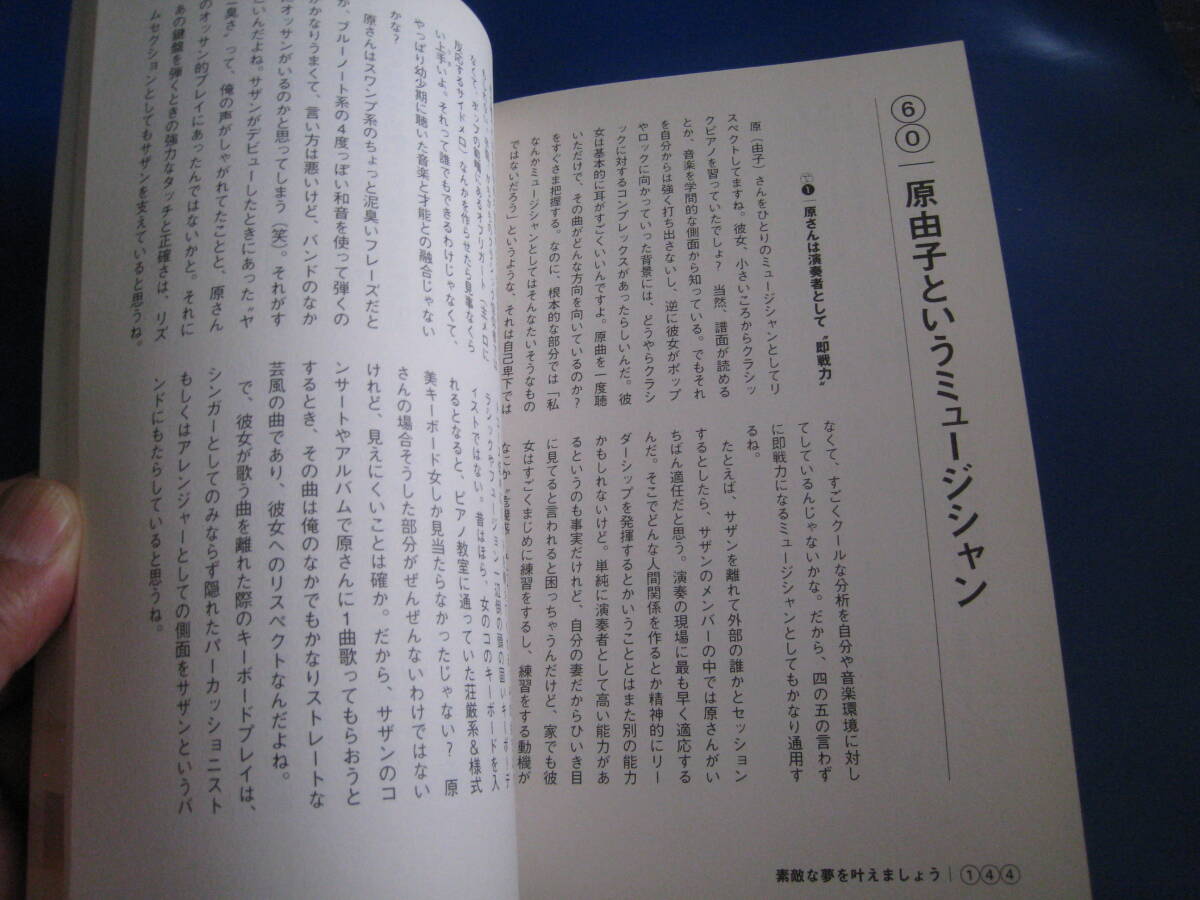 ⑥⓪
原由子というミュージシャン
❶原さんは演奏者として〝即戦力〟
原(由子)さんをひとりのミュージシャンとしてリ
スペクトしてますね。彼女、小さいころからクラシッ
クピアノを習っていたでしょ? 当然、譜面が読める
とか、音楽を学問的な側面から知っている。でもそれ
を自分からは強く打ち出さないし、逆に彼女がポップ
やロックに向かっていった背景には、どうやらクラシ
ックに対するコンプレックスがあったらしいんだ。彼
女は基本的に耳がすごくいいんですよ。原曲を一度聴
いただけで、その曲がどんな方向を向いているのか?
をすぐさま把握する。なのに、根本的な部分では「私
なんかミュージシャンとしてはそんなたいそうなもの
ではないだろう」というような、それは自己卑下では
なくて、すごくクールな分析を自分や音楽環境に対し
てしているんじゃないかな。だから、四の五の言わず
に即戦力になるミュージシャンとしてもかなり通用す
るね。
たとえば、サザンを離れて外部の誰かとセッション
するとしたら、サザンのメンバーの中では原さんがい
ちばん適任だと思う。演奏の現場に最も早く適応する
んだ。そこでどんな人間関係を作るとか精神的にリー
ダーシップを発揮するとかいうこととはまた別の能力
かもしれないけど。単純に演奏者として高い能力があ
るというのも事実だけれど、自分の妻だからひいき目
に見てると言われると困っちゃうんだけど、家でも彼
女はすごくまじめに練習をするし、練習をする動機が
素敵な夢を叶えましょう|①④④
反応するサイドメロ)なんかを作らせたら見事なくら
い上手いよ。それって誰でもできるわけじゃなくて、
やっぱり幼少期に聴いた音楽と才能との融合じゃない
かな?
原さんはスワンプ系のちょっと泥臭いフレーズだと
か、ブルーノート系の4度っぽい和音を使って弾くの
がかなりうまくて、言い方は悪いけど、バンドのなか
にオッサンがいるのかと思ってしまう(笑)。それがす
ごいんだよね。サザンがデビューしたときにあった〝ヤ
臭さ〟って、俺の声がしゃがれてたことと、原さん
のオッサン的プレイにあったんではないかと。それに
あの鍵盤を弾くときの強力なタッチと正確さは、リズ
ムセクションとしてもサザンを支えていると思うね。
ィストではない。昔はほら、女のコのキーボードを入
れるとなると、ピアノ教室に通っていた荘厳系&様式
美キーボード女しか見当たらなかったじゃない? 原
さんの場合そうした部分がぜんぜんないわけではない
けれど、見えにくいことは確か。だから、サザンのコ
ンサートやアルバムで原さんに1曲歌ってもらおうと
するとき、その曲は俺のなかでもかなりストレートな
芸風の曲であり、彼女へのリスペクトなんだよね。
で、彼女が歌う曲を離れた際のキーボードプレイは、
シンガーとしてのみならず隠れたパーカッショニスト
もしくはアレンジャーとしての側面をサザンというバ
ンドにもたらしていると思うね。